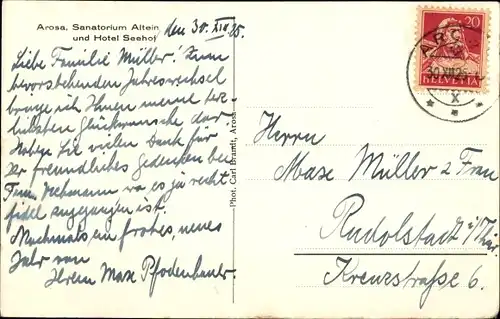 Arosa, Sanatorium Altein
und Hotel Seehof
den 30. XII 25.
Liebe Familie Müller! Zum
bevorstehenden Jahreswechsel
bringe ich Ihnen meine herz-
lichsten Glückwünsche dar.
Haben Sie vielen Dank für
Ihr freundliches Gedenken bei
Fam. wo es ja recht
fidel zugegangen ist.
Nochmals ein frohes, neues
Jahr von
Herrn Max
Phot. Carl Brandt, Arosa
20
HELVETIA
AROSA
30.XII.25
X
Herrn
Max Müller u. Frau
Rudolstadt i/Thür.
Kreuzstraße 6.